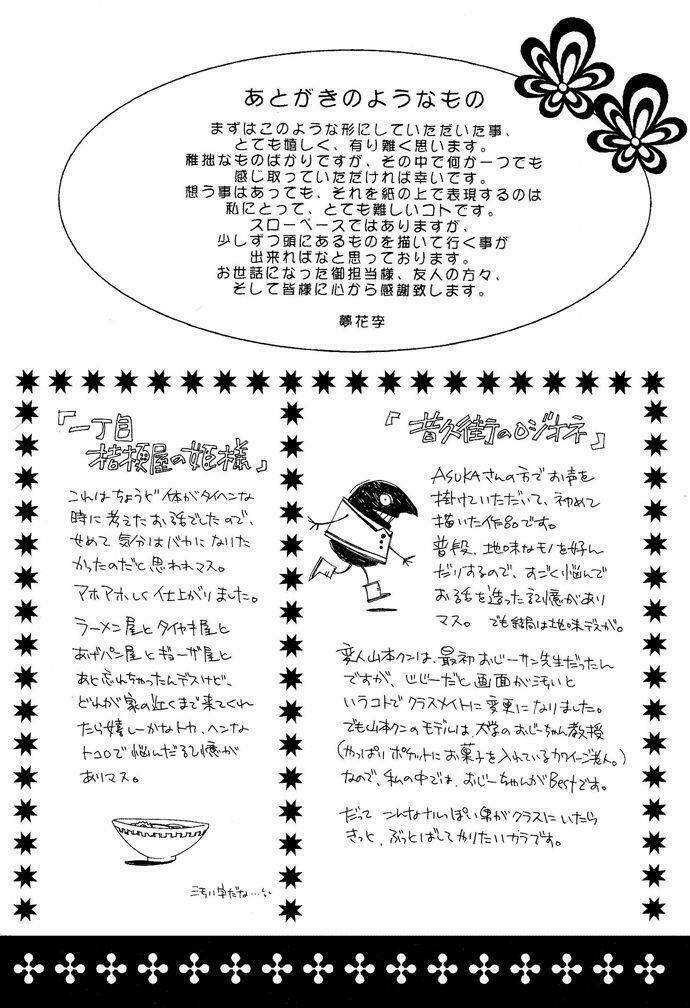 あとがきのようなもの
まずはこのような形にしていただいた事、
とても嬉しく、有り難く思います。
稚拙なものばかりですが、その中で何か一つでも
感じ取っていただければ幸いです。
想う事はあっても、それを紙の上で表現するのは
私にとって、とても難しいコトです。
スローペースではありますが、
少しずつ頭にあるものを描いて行く事が
出来ればなと思っております。
お世話になった御担当様、友人の方々、
そして皆様に心から感謝致します。
夢花李
『一丁目
桔梗屋の姫様』
これはちょうど体がタイヘンな
時に考えたお話でしたので、
せめて気分はバカになりた
かったのだと思われマス。
アホアホしく仕上がりました。
ラーメン屋とタイヤキ屋と
あげパン屋とギョーザ屋と
あと忘れちゃったんデスけど、
どれが家の近くまで来てくれ
たら嬉しーかなトカ、ヘンな
トコロで悩んだ記憶が
ありマス。
汚い字だな…
『音久街のロジオネ』
ASUKAさんの方でお声を
掛けていただいて、初めて
描いた作品です。
普段、地味なモノを好ん
だりするので、すごく悩んで
お話を造った記憶があり
マス。でも結局は地味デスが。
変人山本クンは、最初おじーサン先生だったん
ですが、じじーだと画面が汚いと
いうコトでクラスメイトに変更になりました。
でも山本クンのモデルは、大学のおじーちゃん教授
(やっぱりポケットにお菓子を入れているカワイージ老人。)
なので、私の中では、おじーちゃんがBestです。
だってこんな
っぽい男がクラスにいたら
きっと、ぶっとばしてやりたいカラです。